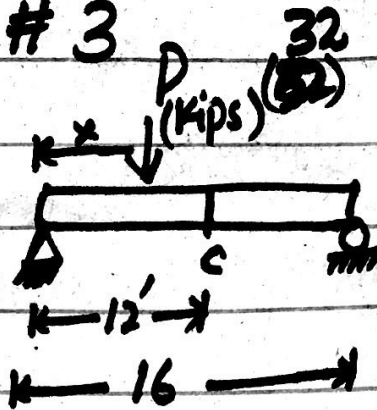 # 3
32
P
(Kips)
x
C
12'
16